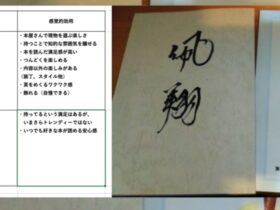 感覚的効用
・本屋さんで現物を選ぶ楽しさ
・持つことで知的な雰囲気を醸せる
・本を読んだ満足感が高い
・つんどくを楽しめる
・内容以外の楽しみがある
(装丁、スタイル他)
・頁をめくるワクワク感
・飾れる（自慢できる）
・持ってるという満足はあるが、
いまさらトレンディーではない
・いつでも好きな本が読める安心感
翔